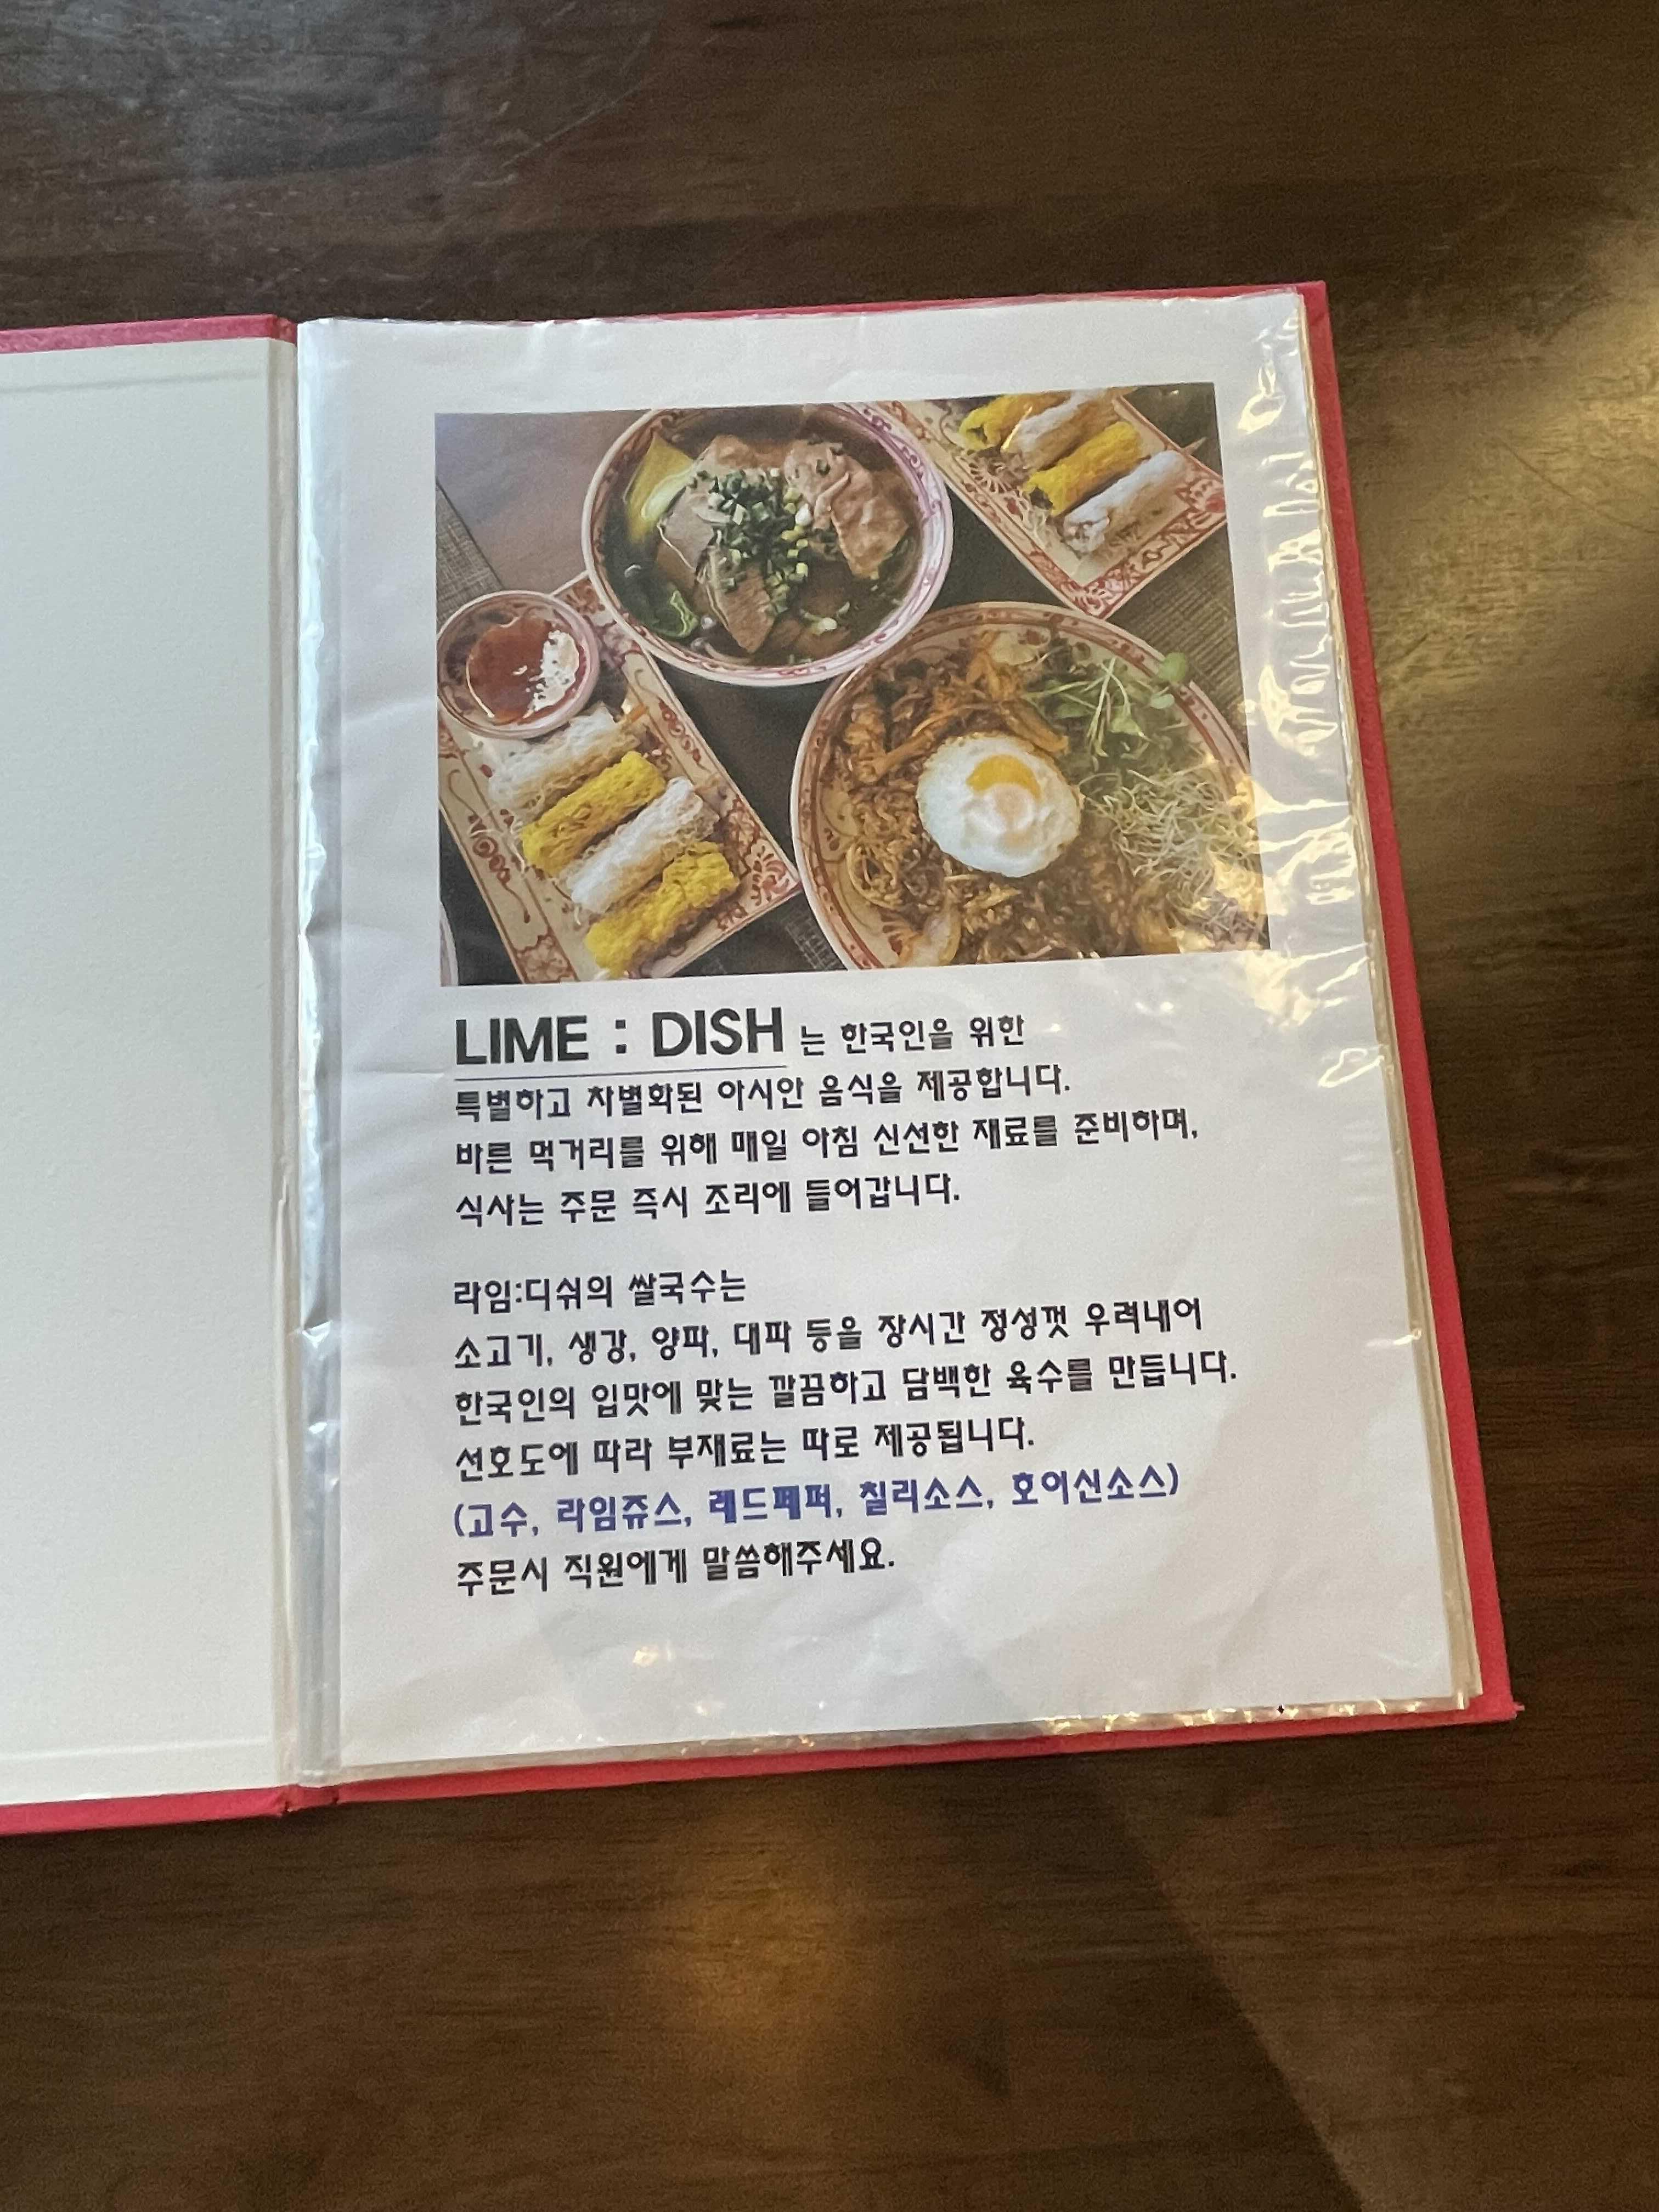 LIME : DISH 는 한국인을 위한
특별하고 차별화된 아시안 음식을 제공합니다.
바른 먹거리를 위해 매일 아침 신선한 재료를 준비하며,
식사는 주문 즉시 조리에 들어갑니다.
라임:디쉬의 쌀국수는
소고기, 생강, 양파, 대파 등을 장시간 정성껏 우려내어
한국인의 입맛에 맞는 깔끔하고 담백한 육수를 만듭니다.
선호도에 따라 부재료는 따로 제공됩니다.
(고수, 라임쥬스, 레드페퍼, 칠리소스, 호이신소스)
주문시 직원에게 말씀해주세요.